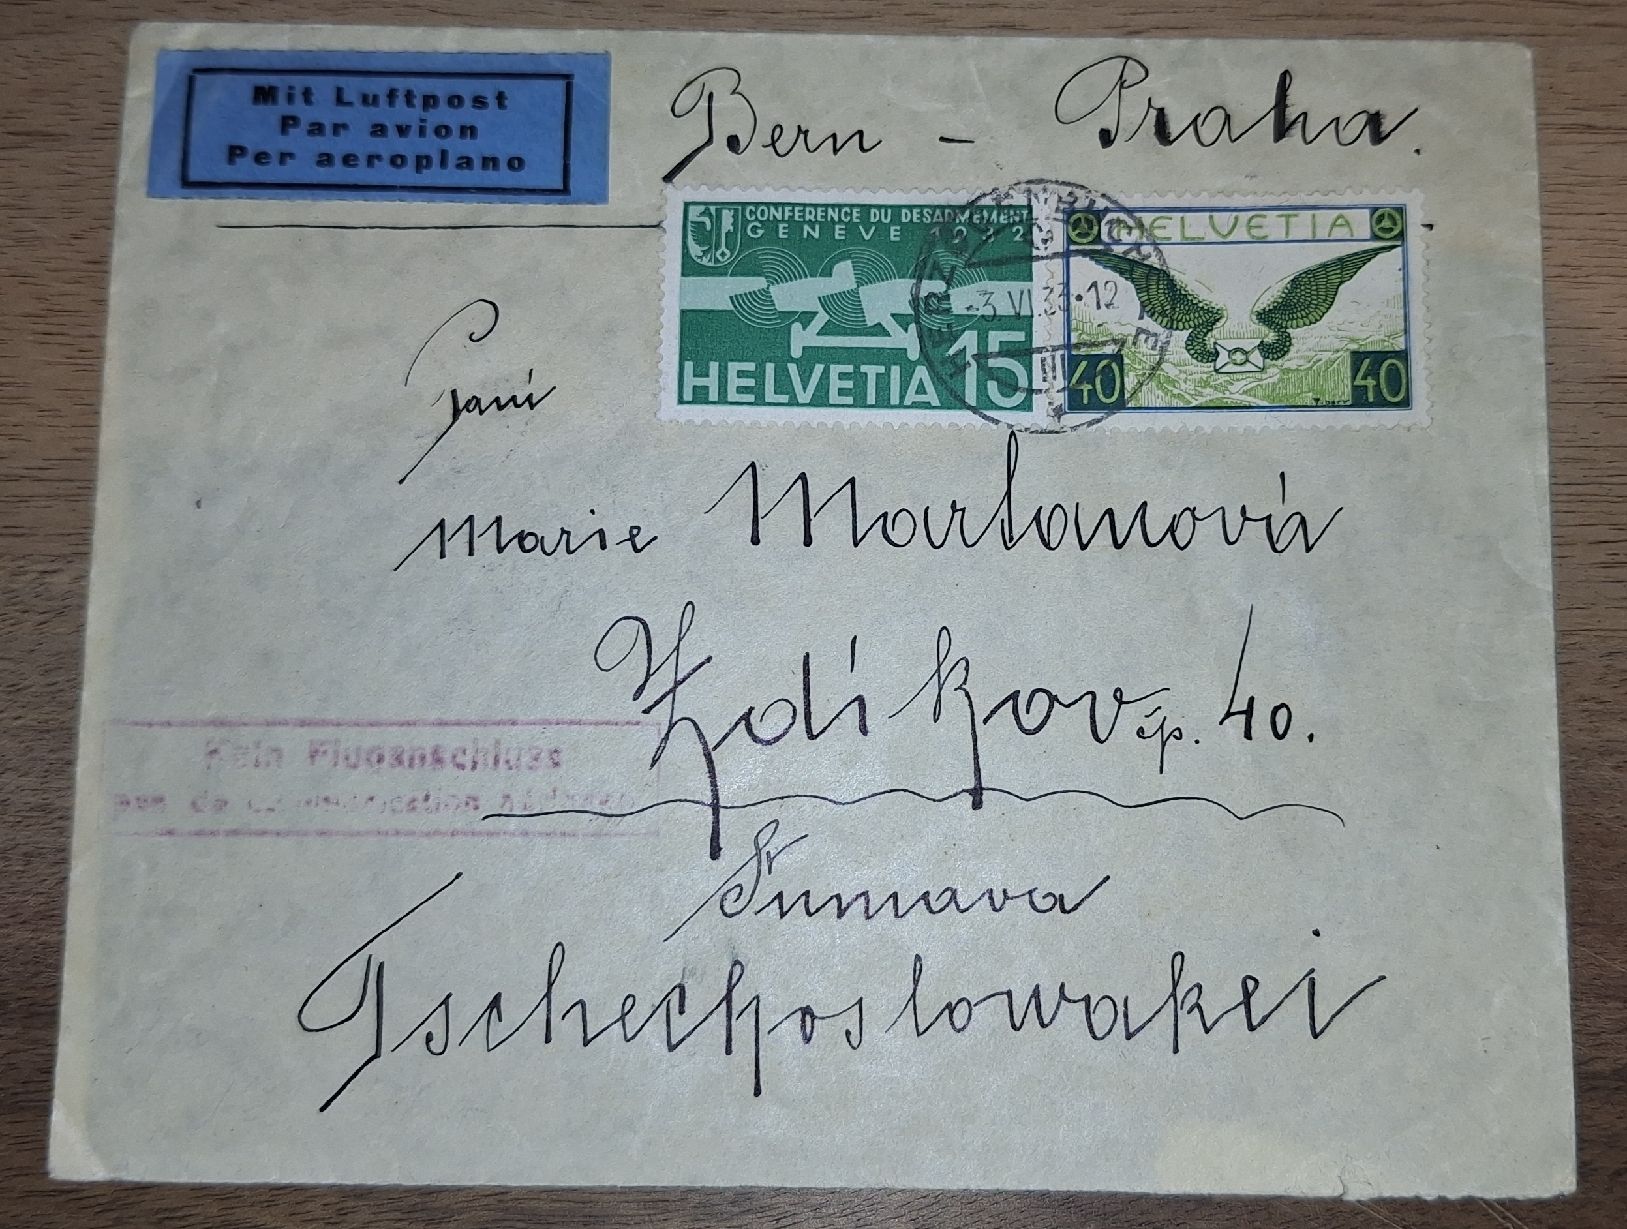 Mit Luftpost
Par avion
Per aeroplano
Bern - Praha.
CONFERENCE DU DESARMEMENT
GENEVE 1932
HELVETIA 15
HELVETIA
40 40
HERZOGENBUCHSEE
-3 VI.33-12
III
Paní
Marie Martanová
Zdíkov čp. 40.
Kein Fluganschluss
pas de communication aérienne
Šumava
Tschechoslowakei